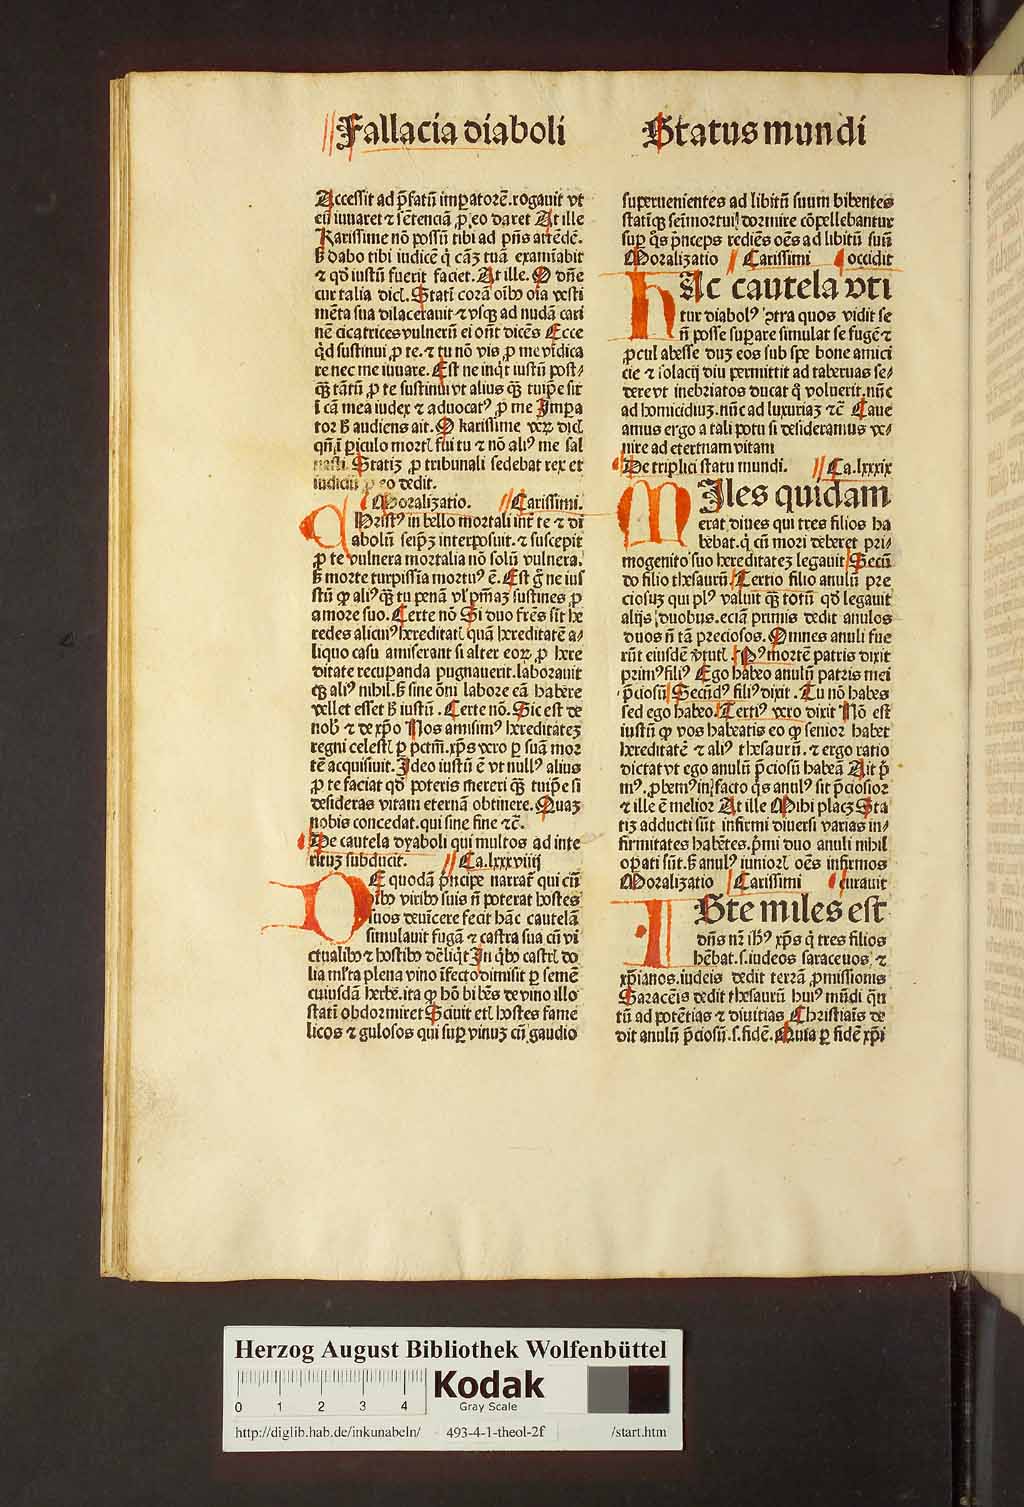 Fallacia diaboli
Accessit ad p̄fatū imꝑatorē.rogauit vt
eū iuuaret ⁊ sētenciā ꝓ eo daret At ille
Karissime nō possū tibi ad p̄ns attēdē.
ß dabo tibi iudicē q̇ cāꝫ tuā examīabit
⁊ qd̄ iustū fuerit faciet. At ille. O dn̄e
cur talia dicꝭ. Statī corā oībꝰ oīa vesti
mēta sua dilacerauit ⁊ vsqꝫ ad nudā carī
nē cicatrices vulnerū ei on̄t dicēs Ecce
q̇d sustinui ꝓ te. ⁊ tu nō vis ꝓ me vīdica
re nec me iuuare. Est ne inq̇t iustū post⸗
qꝫ tātū ꝓ te sustinui vt alius qꝫ tuiꝑe sit
ī cā mea iudex ⁊ aduocatꝰ ꝓ me Imꝑa
tor ß audiens ait. O karissime veꝝ dicꝭ
qn̄ ī ꝑiculo mortꝭ fui tu ⁊ nō aliꝰ me sal
nasti. Statiꝫ ꝓ tribunali sedebat rex et
iudiciū ꝓ eo dedit.
Moralizatio. Carissimi.
Christꝰ in bello mortali int̄ te ⁊ di
abolū seip̄ꝫ interposuit. ⁊ suscepit
ꝓ te vulnera mortalia nō solū vulnera.
ß morte turpissīa mortuꝰ ē. Est gͦ ne ius
stū ꝙ aliꝰ qꝫ tu penā vꝉ p̄maꝫ sustines ꝓ
amore suo. Certe nō Si duo frēs sīt he
redes alicuiꝰ hereditatꝭ quā hereditatē a⸗
liquo casu amiserant si alter eoꝝ ꝓ here
ditate recuꝑanda pugnauerit.laborauit
qꝫ aliꝰ nihil.ß sine oi̅ labore eā habere
vellet esset ß iustū. Certe nō. Sic est de
nobꝭ ⁊ de xp̄o Nos amisimꝰ hereditateꝫ
regni celestꝭ ꝑ pctm̄.xp̄s vero ꝑ suā mor
tē acquisiuit. Ideo iustū ē vt nullꝰ alius
ꝓ te faciat qd̄ poteris mereri qꝫ tuiꝑe si
desideras vitam eternā obtinere. Quaꝫ
nobis concedat.qui sine fine ⁊c̄.
De cautela dyaboli qui multos ad inte
rituꝫ subducit. Ca.lxxxviiij
DE quodā p̄ncipe narratꝭ qui cū
oībꝰ viribꝰ suis n̄ poterat hostes
suos deuīcere fecit hāc cautelā
simulauit fugā ⁊ castra sua cū vi
ctualibꝰ ⁊ hostibꝰ deliq̇t In q̇bꝰ castrꝭ do
lia ml̄ta plena vino īfecto dimisit ꝑ semē
cuiusdā herbe. ita ꝙ hō bibēs de vino illo
statī obdormiret Sciuit etꝭ hostes fame
licos ⁊ gulosos qui suꝑ vinuꝫ cū gaudio
Status mundi
superuenientes ad libitū suum bibentes
statīqꝫ sei̅mortui dormire cōpellebantur
suꝑ q̇s p̄nceps rediēs oēs ad libitū suū
Moralizatio Carissimi occidit
HAc cautela vti
tur diabolꝰ ꝯtra quos vidit se
n̄ posse suꝑare simulat se fugē ⁊
ꝓcul abesse duꝫ eos sub spe bone amici
cie ⁊ solacij diu permittit ad tabernas se⸗
dere vt inebriatos ducat q̊ voluerit.nūc
ad homicidiuꝫ.nūc ad luxuriaꝫ ⁊c̄ Caue
amus ergo a tali potu si desideramus ve⸗
nire ad etertnam vitam
De triplici statu mundi. Ca.lxxxix
MIles quidam
erat diues qui tres filios ha
bebat.q̇ cū mori deberet pri⸗
mogenito suo hereditateꝫ legauit Secū
do filio thesaurū. Tertio filio anulū pre
ciosuꝫ qui plꝰ valuit qꝫ totū qd̄ legauit
alijs duobus.eciā primis dedit anulos
duos n̄ tā preciosos. Omnes anuli fue
rūt eiusdē v̄tutꝭ. Pꝰ mortē patris dixit
primꝰ filiꝰ Ego habeo anulū patris mei
p̄ciosū Secūdꝰ filiꝰ dixit. Tu nō habes
sed ego habeo Tertiꝰ vero dixit Nō est
iustū ꝙ vos habeatis eo ꝙ senior habet
hereditatē ⁊ aliꝰ thesaurū. ⁊ ergo ratio
dictat vt ego anulū p̄ciosū habeā Ait p̄
mꝰ. ꝓbemꝰ in facto q̇s anulꝰ sit p̄ciosior
⁊ ille ē melior At ille Mihi placꝫ Sta
tiꝫ adducti sūt infirmi diuersi varias in⸗
firmitates habētes.p̄mi duo anuli nihil
oꝑati sūt.ß anulꝰ iuniorꝭ oēs infirmos
Moralizatio Carissimi curauit
ISte miles est
dn̄s nr̄ ih̄ꝰ xp̄s q̇ tres filios
hēbat.s.iudeos saracenos ⁊
xp̄ianos.iudeis dedit terrā ꝓmissionis
Saracēis dedit thesaurū huiꝰ mūdi q̄n
tū ad potētias ⁊ diuitias Christiaīs de
dit anulū p̄ciosū.s.fidē. Quia ꝑ fidē xp̄i
Herzog August Bibliothek Wolfenbüttel
0 1 2 3 4
Kodak
Gray Scale
http://diglib.hab.de/inkunabeln/ 493-4-1-theol-2f /start.htm